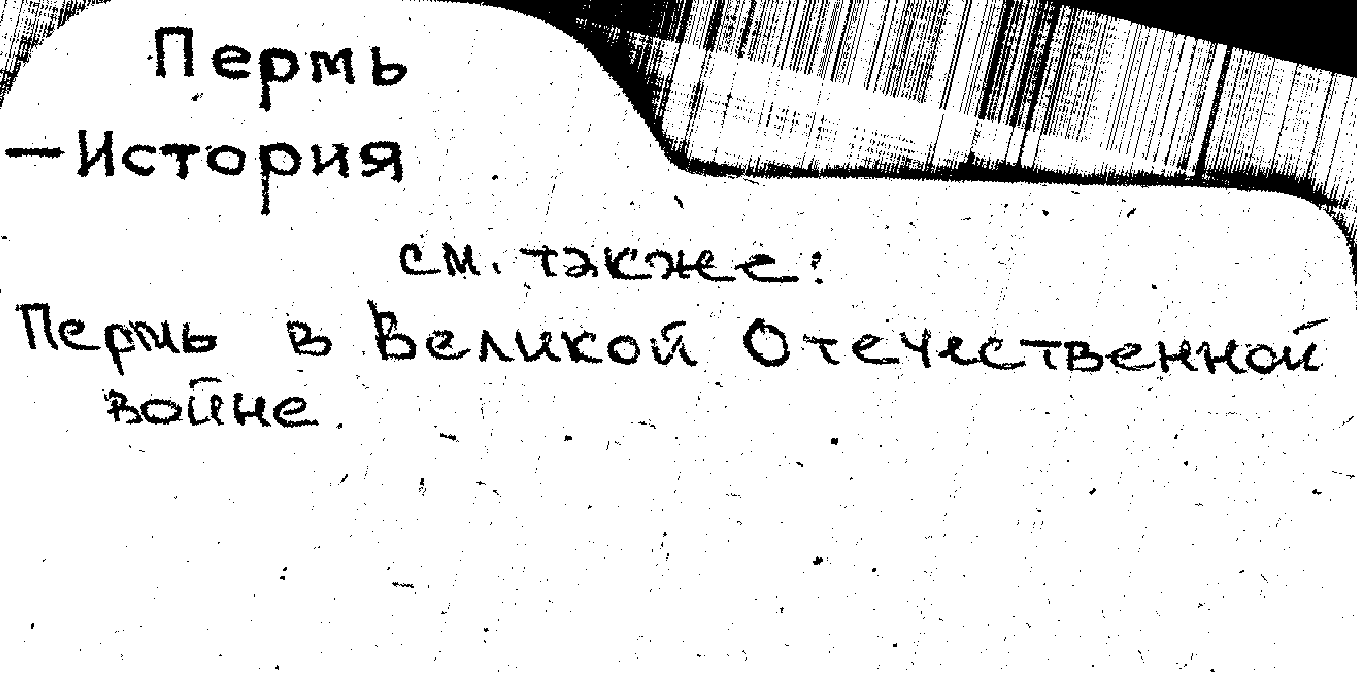 Пермь
—История
см. также:
Пермь в Великой Отечественной
войне.